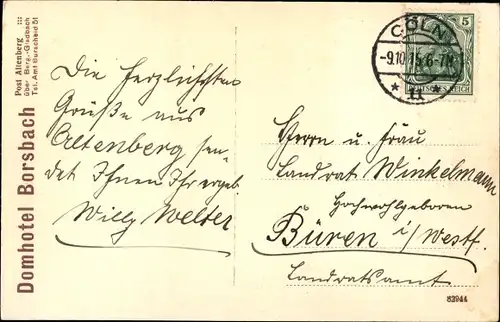 Domhotel Borsbach
Post Altenberg :::
über Berg.-Gladbach
Tel. Amt Burscheid 51
Die herzlichsten
Grüße aus
Altenberg sen-
det Ihnen Ihr ergeb.
Willy Welter
CÖLN
-9.10.15.6-7N.
* 11 *
5
DEUTSCHES REICH
Herrn u. Frau
Landrat Winkelmann
Hochwohlgeboren
Büren i/Westf.
Landratsamt.
82944